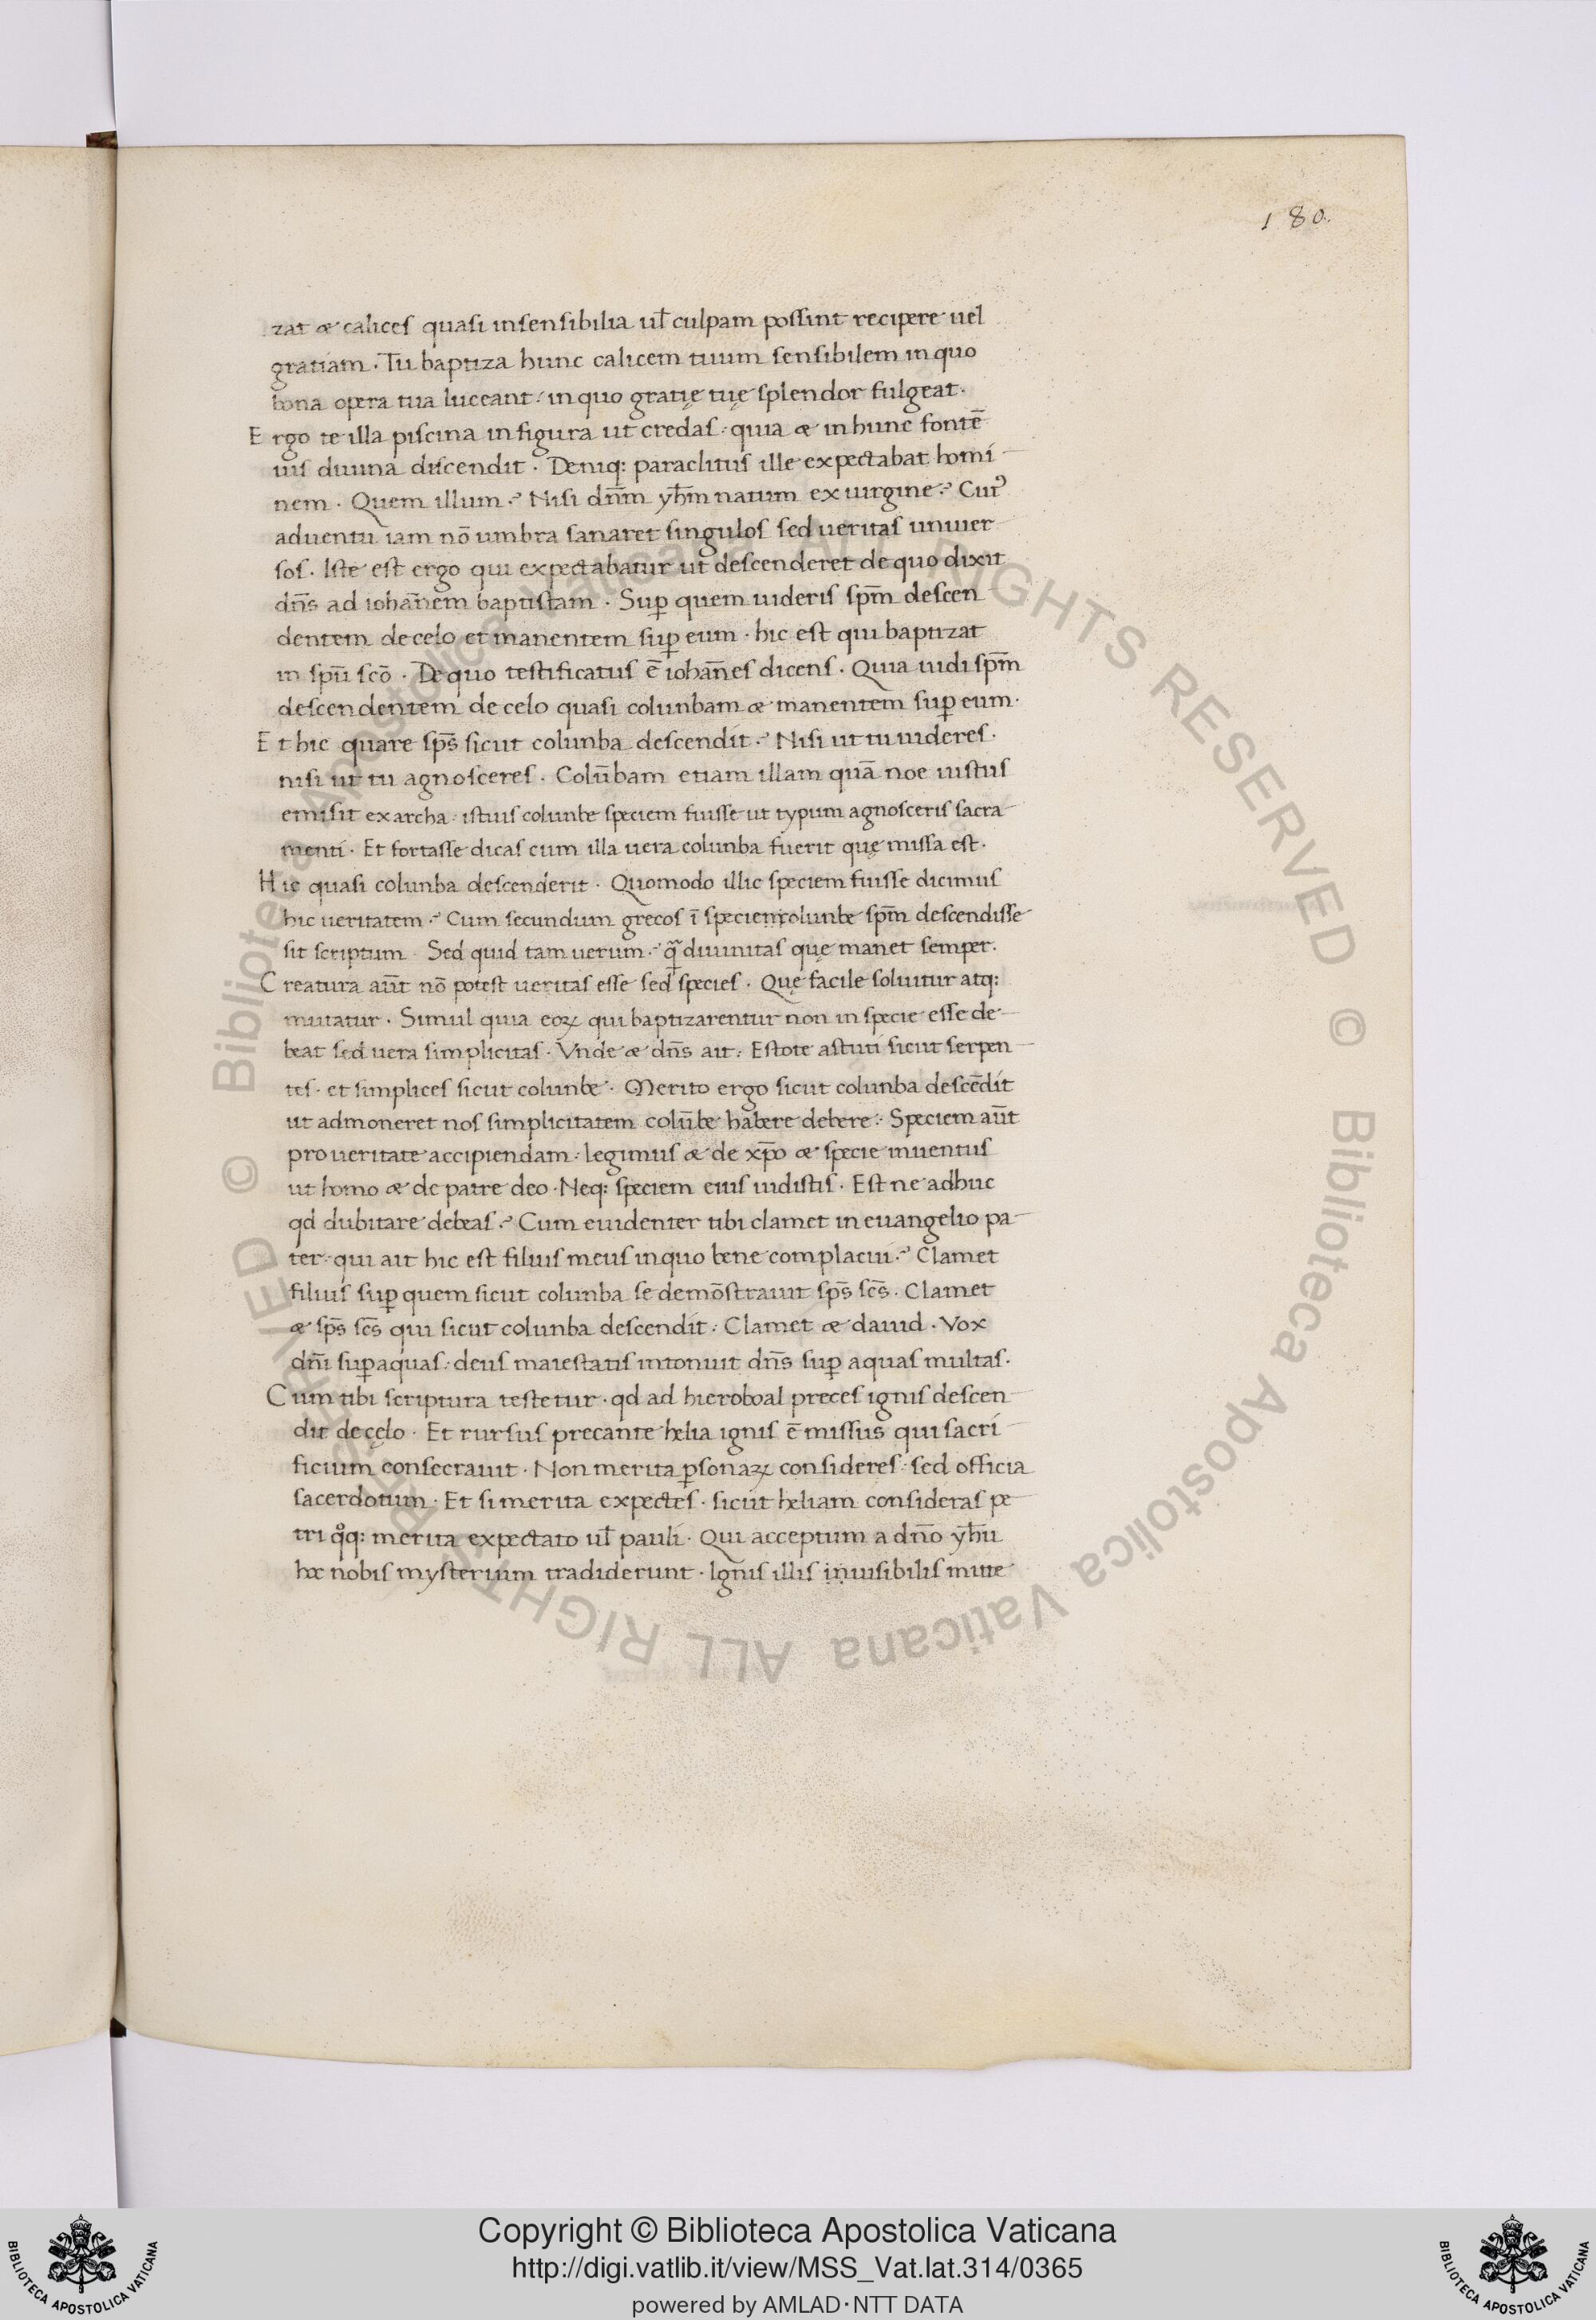 180.
zat & calices quasi insensibilia ul̄ culpam possint recipere uel
gratiam. Tu baptiza hunc calicem tuum sensibilem in quo
bona opera tua luceant: in quo gratię tuę splendor fulgeat.
Ergo te illa piscina in figura ut credas: quia & in hunc fontē
uis diuina discendit. Deniq: paraclitus ille expectabat homi
nem. Quem illum? Nisi dn̄m yh̄m natum ex uirgine? Cui'
aduentu iam nō umbra sanaret singulos sed ueritas uniuer
sos. Iste est ergo qui expectabatur ut descenderet de quo dixit
dn̄s ad iohān̄em baptistam. Sup̱ quem uideris sp̄m descen
dentem de celo et manentem sup̱ eum. hic est qui baptizat
in spū scō. De quo testificatus ē iohān̄es dicens. Quia uidi sp̄m
descendentem de celo quasi colunbam & manentem sup̱ eum.
Et hic quare sp̄s sicut colunba descendit? Nisi ut tu uideres.
nisi ut tu agnosceres. Colūbam etiam illam quā noe iustus
emisit ex archa: istius colunbe speciem fuisse ut typum agnosceris sacra
menti. Et fortasse dicas cum illa uera colunba fuerit quę missa est.
Hic quasi colunba descenderit. Quomodo illic speciem fuisse dicimus
hic ueritatem? Cum secundum grecos ī speciem colunbe sp̄m descendisse
sit scriptum. Sed quid tam uerum? q̄ diuinitas quę manet semper.
Creatura aūt nō potest ueritas esse sed species. Quę facile soluitur atq:
mutatur. Simul quia eoꝝ qui baptizarentur non in specie esse de
beat sed uera simplicitas. Vnde & dn̄s ait: Estote astuti sicut serpen
tes. et simplices sicut colunbe. Merito ergo sicut colunba descēdit
ut admoneret nos simplicitatem colūbe habere debere: Speciem aūt
pro ueritate accipiendam: legimus & de xp̄o & specie inuentus
ut homo & de patre deo. Neq: speciem eius uidistis. Est ne adhuc
qd dubitare debeas? Cum euidenter tibi clamet in euangelio pa
ter: qui ait hic est filius meus in quo bene complacui? Clamet
filius sup̱ quem sicut colunba se demōstrauit sp̄s sc̄s. Clamet
& sp̄s sc̄s qui sicut colunba descendit: Clamet & dauid. Vox
dn̄i sup̱ aquas: deus maiestatis intonuit dn̄s sup̱ aquas multas.
Cum tibi scriptura testetur. qd ad hieroboal preces ignis descen
dit de cęlo. Et rursus precante helia ignis ē missus qui sacri
ficium consecrauit. Non merita ꝑsonaꝝ consideres: sed officia
sacerdotum. Et si merita expectes. sicut heliam consideras pe
tri qͦq: merita expectato ul̄ pauli. Qui acceptum a dn̄o yh̄u
hoc nobis mysterium tradiderunt. Ignis illis inuisibilis mitte
© Biblioteca Apostolica Vaticana ALL RIGHTS RESERVED
© Biblioteca Apostolica Vaticana ALL RIGHTS RESERVED
Copyright © Biblioteca Apostolica Vaticana
http://digi.vatlib.it/view/MSS_Vat.lat.314/0365
powered by AMLAD·NTT DATA
BIBLIOTECA APOSTOLICA VATICANA
BIBLIOTECA APOSTOLICA VATICANA